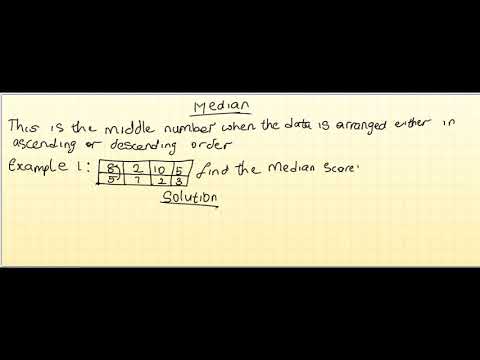 Median
This is the middle number when the data is arranged either in
ascending or descending order
Example 1: 8 2 10 5 find the Median Score.
5 7 2 3
Solution